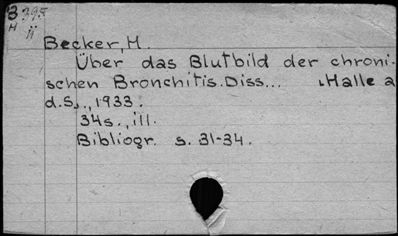 B 395
H ij
Becker, H.
Über das Blutbild der chroni-
schen Bronchitis. Diss... Halle a
d. S., 1933.
34s., ill.
Bibliogr. s. 31-34.